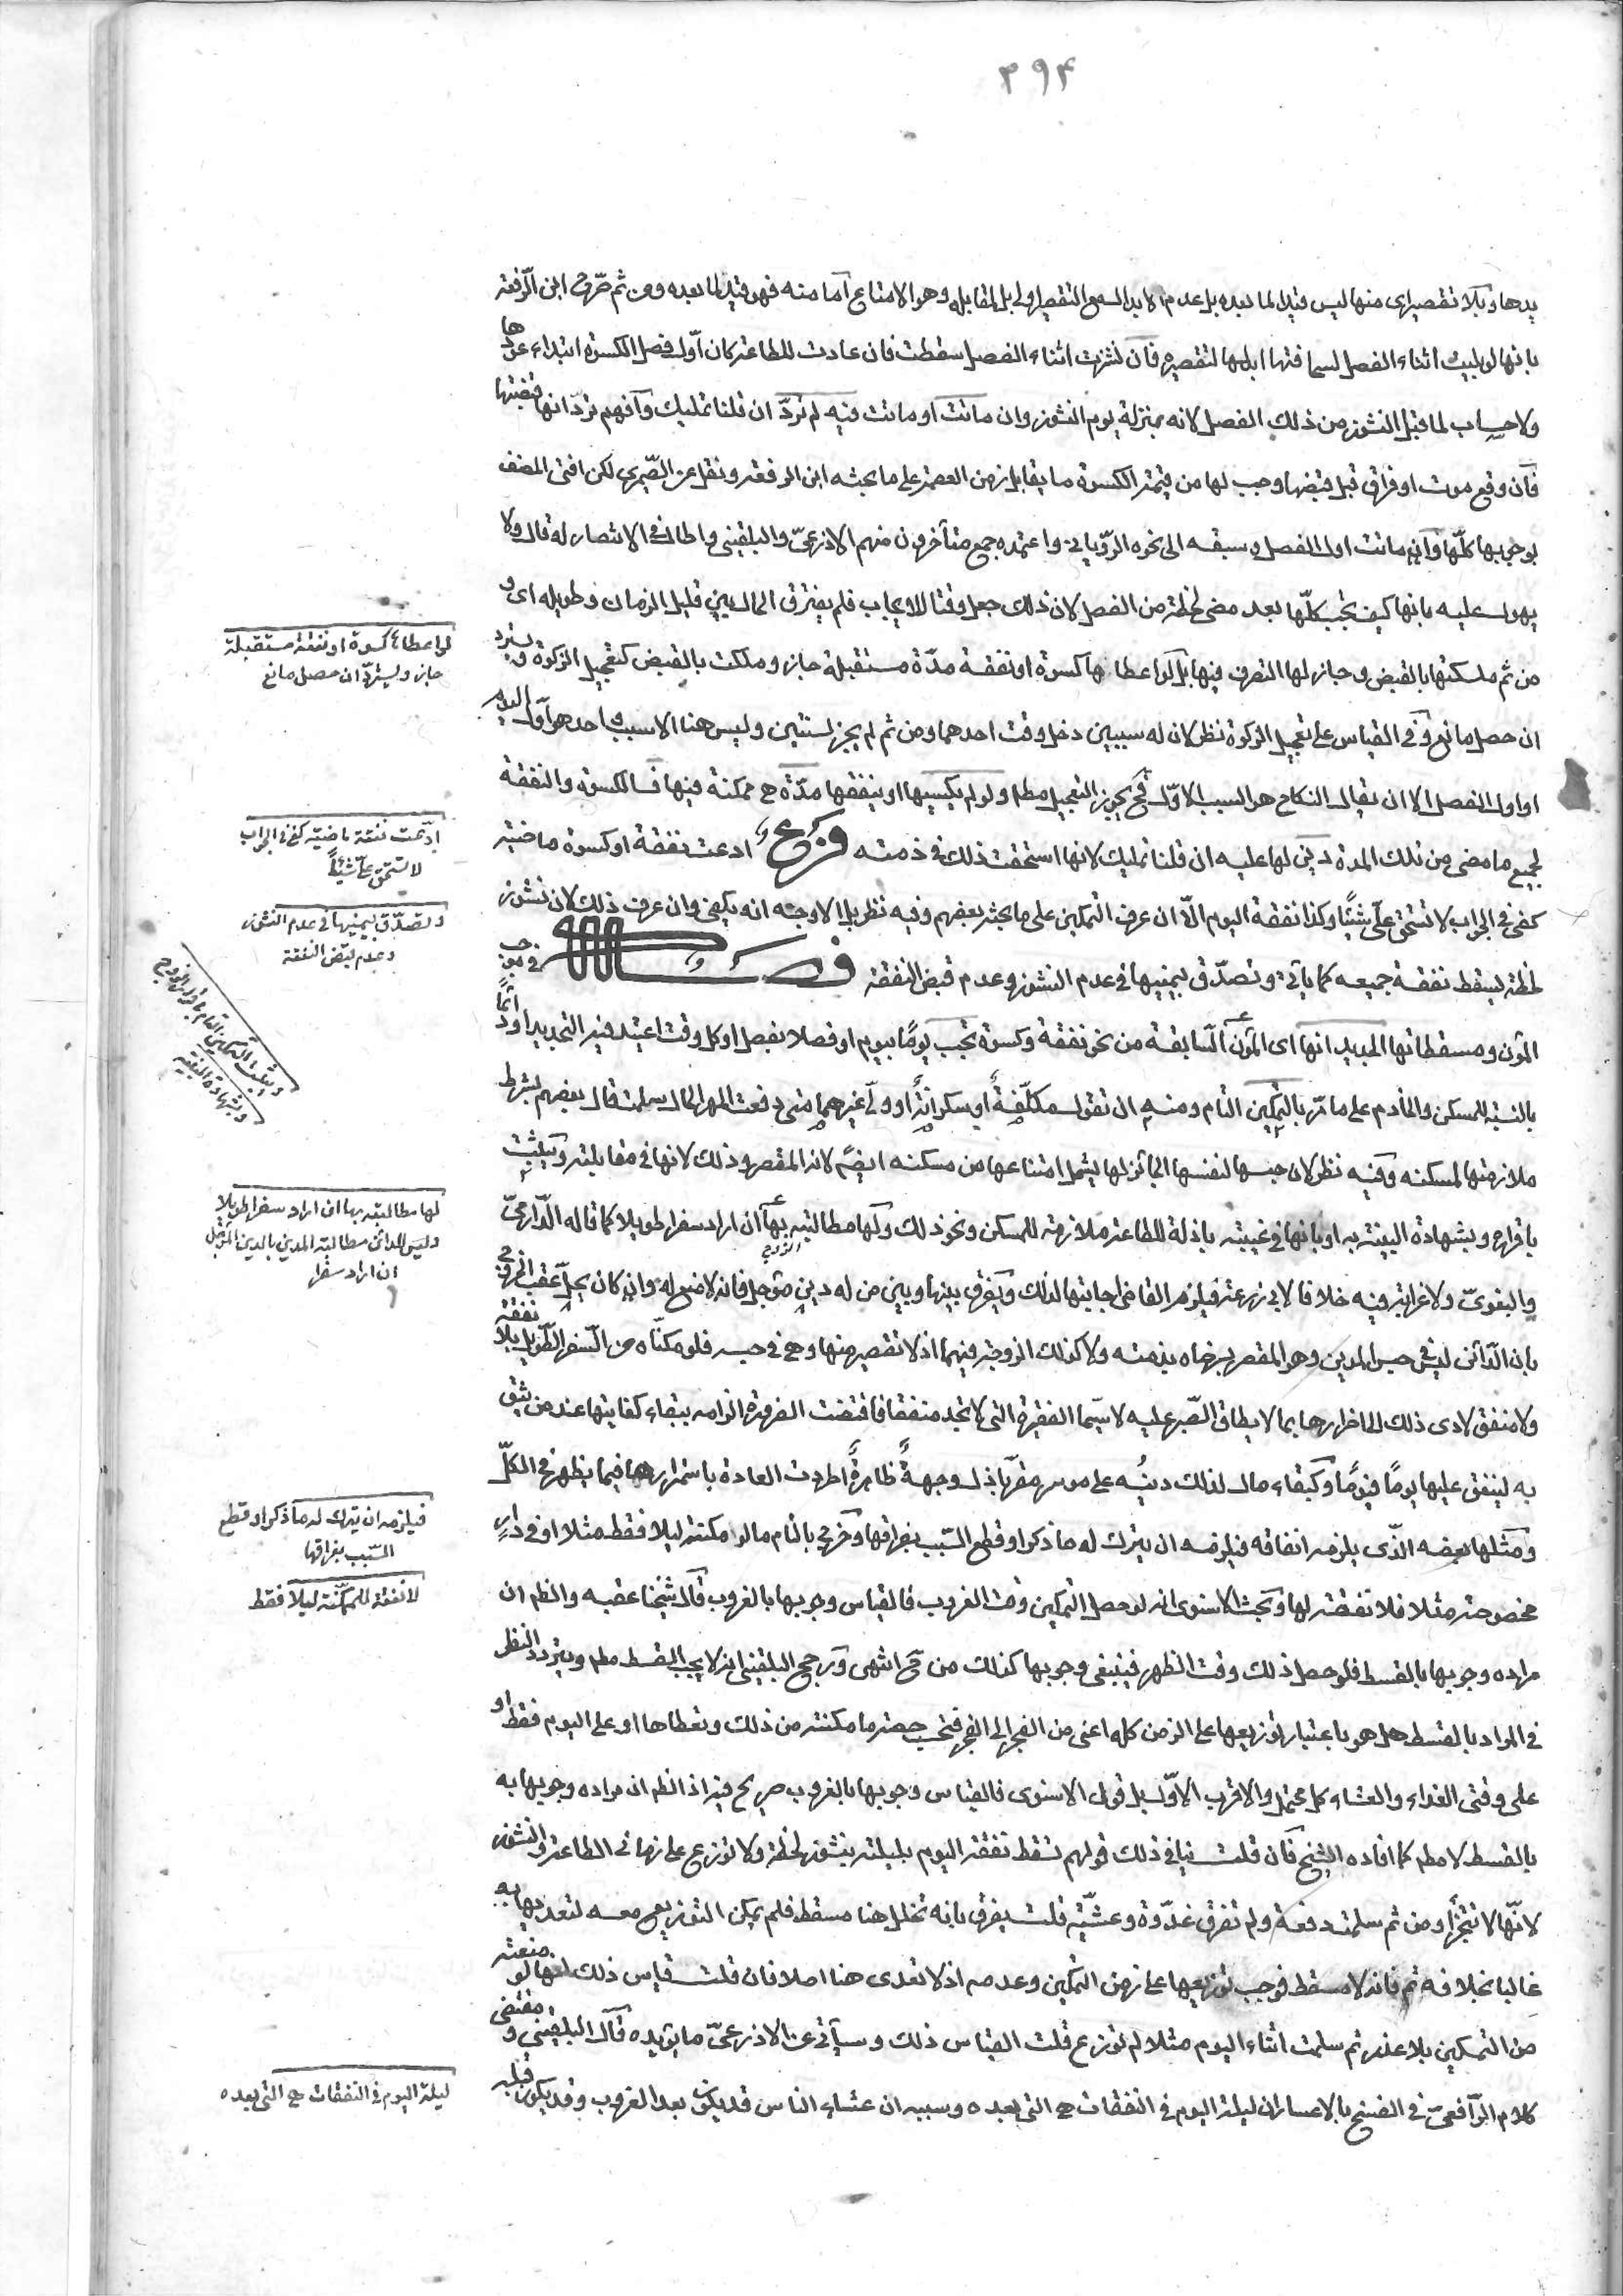 ٣٩۴
يدها وبلا تقصير اى منها ليس قيدا لما بعده بل عدم الابدال مع التقصير اولى بل لمقابله وهو الامتناع اما منه فهو قيد لما بعده ومن ثم صرّح ابن الرّفعة
بانها لو بليت اثناء الفصل لسخافتها ابدلها لتقصيره فآن نشزت اثناء الفصل سقطت فان عادت للطاعة كان اوّل فصل الكسوة ابتداء عودها
ولا حساب لما قبل النشوز من ذلك الفصل لانه بمنزلة يوم النشوز وان ماتت او مات فيه لم تردّ ان قلنا تمليك وآفهم تردّ انها قبضتها
فآن وقع موت او فراق قبل قبضها وجب لها من قيمة الكسوة ما يقابل زمن العصمة على ما بحثه ابن الرفعة ونقل عن الصّيمرى لكن افتى المصنف
بوجوبها كلّها وآن ماتت اول الفصل وسبقه الى نحوه الرّويانى واعتمده جمع متأخرون منهم الاذرعىّ والبلقينى واطال فى الانتصار له قال ولا
يهول عليه بانها كيف تجب كلّها بعد مضى لحظة من الفصل لان ذلك جعل وقتا للايجاب فلم يفترق الحال بين قليل الزمان وطويله اى و
من ثم ملكتها بالقبض وجاز لها التصرف فيها بل لو اعطاها كسوة او نفقة مدّة مستقبلة جاز وملكت بالقبض كتعجيل الزكوة ويسترد
ان حصل مانع وفى القياس على تعجيل الزكوة نظر لان له سببين دخل وقت احدهما ومن ثم لم يجز لسنتين وليس هنا الا سبب واحد هو اوّل اليوم
او اول الفصل الا ان يقال النكاح هو السبب الاوّل فح يجوز التعجيل مطم ولو لم يكسها او ينفقها مدّة هى ممكنة فيها فالكسوة والنفقة
لجميع ما مضى من تلك المدة دين لها عليه ان قلنا تمليك لانها استحقت ذلك فى ذمته فرع ادعت نفقة او كسوة ماضية
كفى فى الجواب لا تستحق علىّ شيئًا وكذا نفقة اليوم الّا ان عرف التمكين على ما بحثه بعضهم وفيه نظر بل الاوجه انه يكفى وان عرف ذلك لان نشوز
لحظة يسقط نفقة جميعه كما يأتى وتصدّق بيمينها فى عدم النشوز وعدم قبض النفقة فصل فى موجب
المؤن ومسقطاتها الجديد انها اى المؤن السّابقة من نحو نفقة وكسوة تجب يومًا بيوم او فصلا بفصل او كل وقت اعتيد فيه التجديد او دائمًا
بالنسبة للمسكن والخادم على ما مرّ بالتمكين التام ومنه ان تقول مكلّفة او سكرانة او ولىّ غيرهما متى دفعت المهر الحال سلمت قال بعضهم بشرط
ملازمتها لمسكنه وفيه نظر لان حبسها لنفسها الجائز لها يشمل امتناعها من مسكنه ايضًا لانه المقصر وذلك لانها فى مقابلته ويثبت
باقراره وبشهادة البينة به او بانها فى غيبته باذلة للطاعة ملازمة للمسكن ونحو ذلك ولها مطالبته بها ان اراد الزوج سفرا طويلا كما قاله الدّارمىّ
والبغوىّ ولا غرابة فيه خلافا لابى زرعة فيلزم القاضى اجابتها لذلك ويفرق بينها وبين من له دين مؤجل فانه لا منع له وان كان يحلّ عقب الخروج
بان الدّائن ليس فى حبس المدين وهو المقصر برضاه بذمته ولا كذلك الزوجة فيهما اذ لا تقصير منها وهى فى حبسه فلو مكنّاه من السّفر الطّويل بلا نفقة
ولا منفق لادى ذلك الى اضرارها بما لا يطاق الصّبر عليه لا سيّما الفقيرة التى لا تجد منفقا فاقتضت الضرورة الزامه ببقاء كفايتها عند من يثق
به لينفق عليها يومًا فيومًا وكبقاء مال لذلك دينُه على موسر مقرّ باذل وجهةٌ ظاهرةٌ اطردت العادة باستمرارها فيما يظهر فى الكلّ
ومثلها بعضه الذّى يلزمه انفاقه فيلزمه ان يترك له ما ذكر او قطع السّبب بفراقها وخرج بالتام ما لو مكنته ليلا فقط مثلا او فى دار
مخصوصة مثلا فلا نفقة لها وبحث الاسنوى انه لو حصل التمكين وقت الغروب فالقياس وجوبها بالغروب قال شيخنا عقبه والظم ان
مراده وجوبها بالقسط فلو حصل ذلك وقت الظهر فينبغى وجوبها كذلك من ح انتهى ورجح البلقينى انه لا يجب القسط مطم ويتردد النظر
فى المراد بالقسط هل هو باعتبار توزيعها على الزمن كله اعنى من الفجر الى الفجر فتحسب حصة ما مكنته من ذلك وتعطاها او على اليوم فقط او
على وقتى الغداء والعشاء كل محتمل والاقرب الاوّل بل قول الاسنوى فالقياس وجوبها بالغروب صريح فيه اذ الظم ان مراده وجوبها به
بالقسط لا مطم كما افاده الشيخ فآن قلت ينافى ذلك قولهم تسقط نفقة اليوم بليلته بنشوز لحظة ولا توزع على زمانى الطاعة والنشوز
لانّها لا تتجزأ ومن ثم سلمت دفعة ولم تفرق غدوة وعشيّة قلت يفرق بانه تخلل هنا مسقط فلم يمكن التوزيع معه لتعديها به
غالبا بخلافه ثم فانه لا مسقط فوجب توزيعها على زمن التمكين وعدمه اذ لا تعدى هنا اصلا فان قلت قياس ذلك انها لو منعته
من التمكين بلا عذر ثم سلمت اثناء اليوم مثلا لم توزع قلت القياس ذلك وسيأتى عن الاذرعىّ ما يؤيده قال البلقينى ومقتضى
كلام الرّافعىّ فى الفسخ بالاعسار ان ليلة اليوم فى النفقات هى التى بعده وسببه ان عشاء الناس قد يكون بعد الغروب وقد يكون قبله
لو اعطاها كسوة او نفقة مستقبلة
جاز ويستردّ ان حصل مانع
ادّعت نفقة ماضية كفى فى الجواب
لا تستحق علىّ شيئًا
وتصدّق بيمينها فى عدم النشوز
وعدم قبض النفقة
ويثبت التمكين التام باقرار الزوج
وبشهادة البينة
لها مطالبته بها ان اراد سفرا طويلا
وليس للدائن مطالبة المدين بالدين المؤجل
ان اراد سفرا
فيلزمه ان يترك له ما ذكر او قطع
السّبب بفراقها
لا نفقة للممكّنة ليلا فقط
ليلة اليوم فى النفقات هى التى بعده